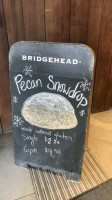 BRIDGEHEAD
Pecan Snowdrop
made without gluten!
Single $2